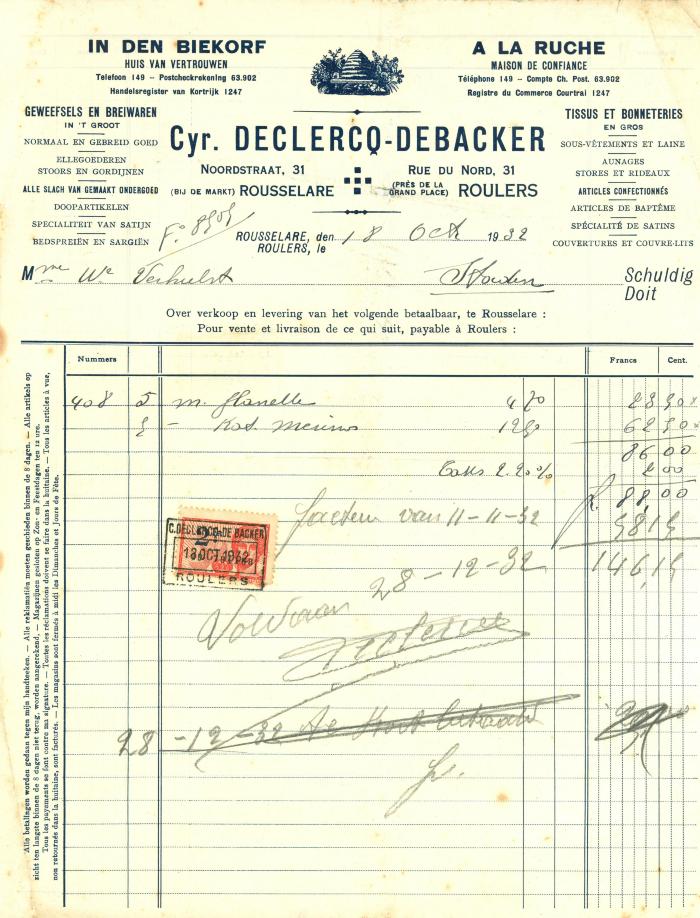 IN DEN BIEKORF
HUIS VAN VERTROUWEN
Telefoon 149 – Postcheckrekening 63.902
Handelsregister van Kortrijk 1247
A LA RUCHE
MAISON DE CONFIANCE
Téléphone 149 – Compte Ch. Post. 63.902
Registre du Commerce Courtrai 1247
GEWEEFSELS EN BREIWAREN
IN 'T GROOT
NORMAAL EN GEBREID GOED
ELLEGOEDEREN
STOORS EN GORDIJNEN
ALLE SLACH VAN GEMAAKT ONDERGOED
DOOPARTIKELEN
SPECIALITEIT VAN SATIJN
BEDSPREIËN EN SARGIËN
Cyr. DECLERCQ-DEBACKER
NOORDSTRAAT, 31
(BIJ DE MARKT) ROUSSELARE
RUE DU NORD, 31
(PRÈS DE LA GRAND PLACE) ROULERS
TISSUS ET BONNETERIES
EN GROS
SOUS-VÊTEMENTS ET LAINE
AUNAGES
STORES ET RIDEAUX
ARTICLES CONFECTIONNÉS
ARTICLES DE BAPTÊME
SPÉCIALITÉ DE SATINS
COUVERTURES ET COUVRE-LITS
ROUSSELARE, den 18 Oct 1932
ROULERS, le
Mme We Verhulst Staden Schuldig
Doit
Over verkoop en levering van het volgende betaalbaar, te Rousselare :
Pour vente et livraison de ce qui suit, payable à Roulers :
Nummers Francs Cent.
408 5 m. flanelle 4 70 23 50 x
5 – Kat. merinos 12 50 62 50 x
86 00
Taks 2.20% 2 00
fr. 88,00
factuur van 11-11-32 58 15
146,15
C. DECLERCQ-DE BACKER
18 OCT. 1932
ROULERS
28-12-32
Voldaan
28-12-32
Alle betalingen worden gedaan tegen mijn handteeken. — Alle reklamatiën moeten geschieden binnen de 8 dagen. — Alle artikels op
zicht ten langste binnen de 8 dagen niet terug, worden aangerekend. — Magazijnen gesloten op Zon- en Feestdagen ten 12 ure.
Tous les payements se font contre ma signature. — Toutes les réclamations doivent se faire dans la huitaine. — Tous les articles à vue,
non retournés dans la huitaine, sont facturés. — Les magasins sont fermés à midi les Dimanches et Jours de Fête.